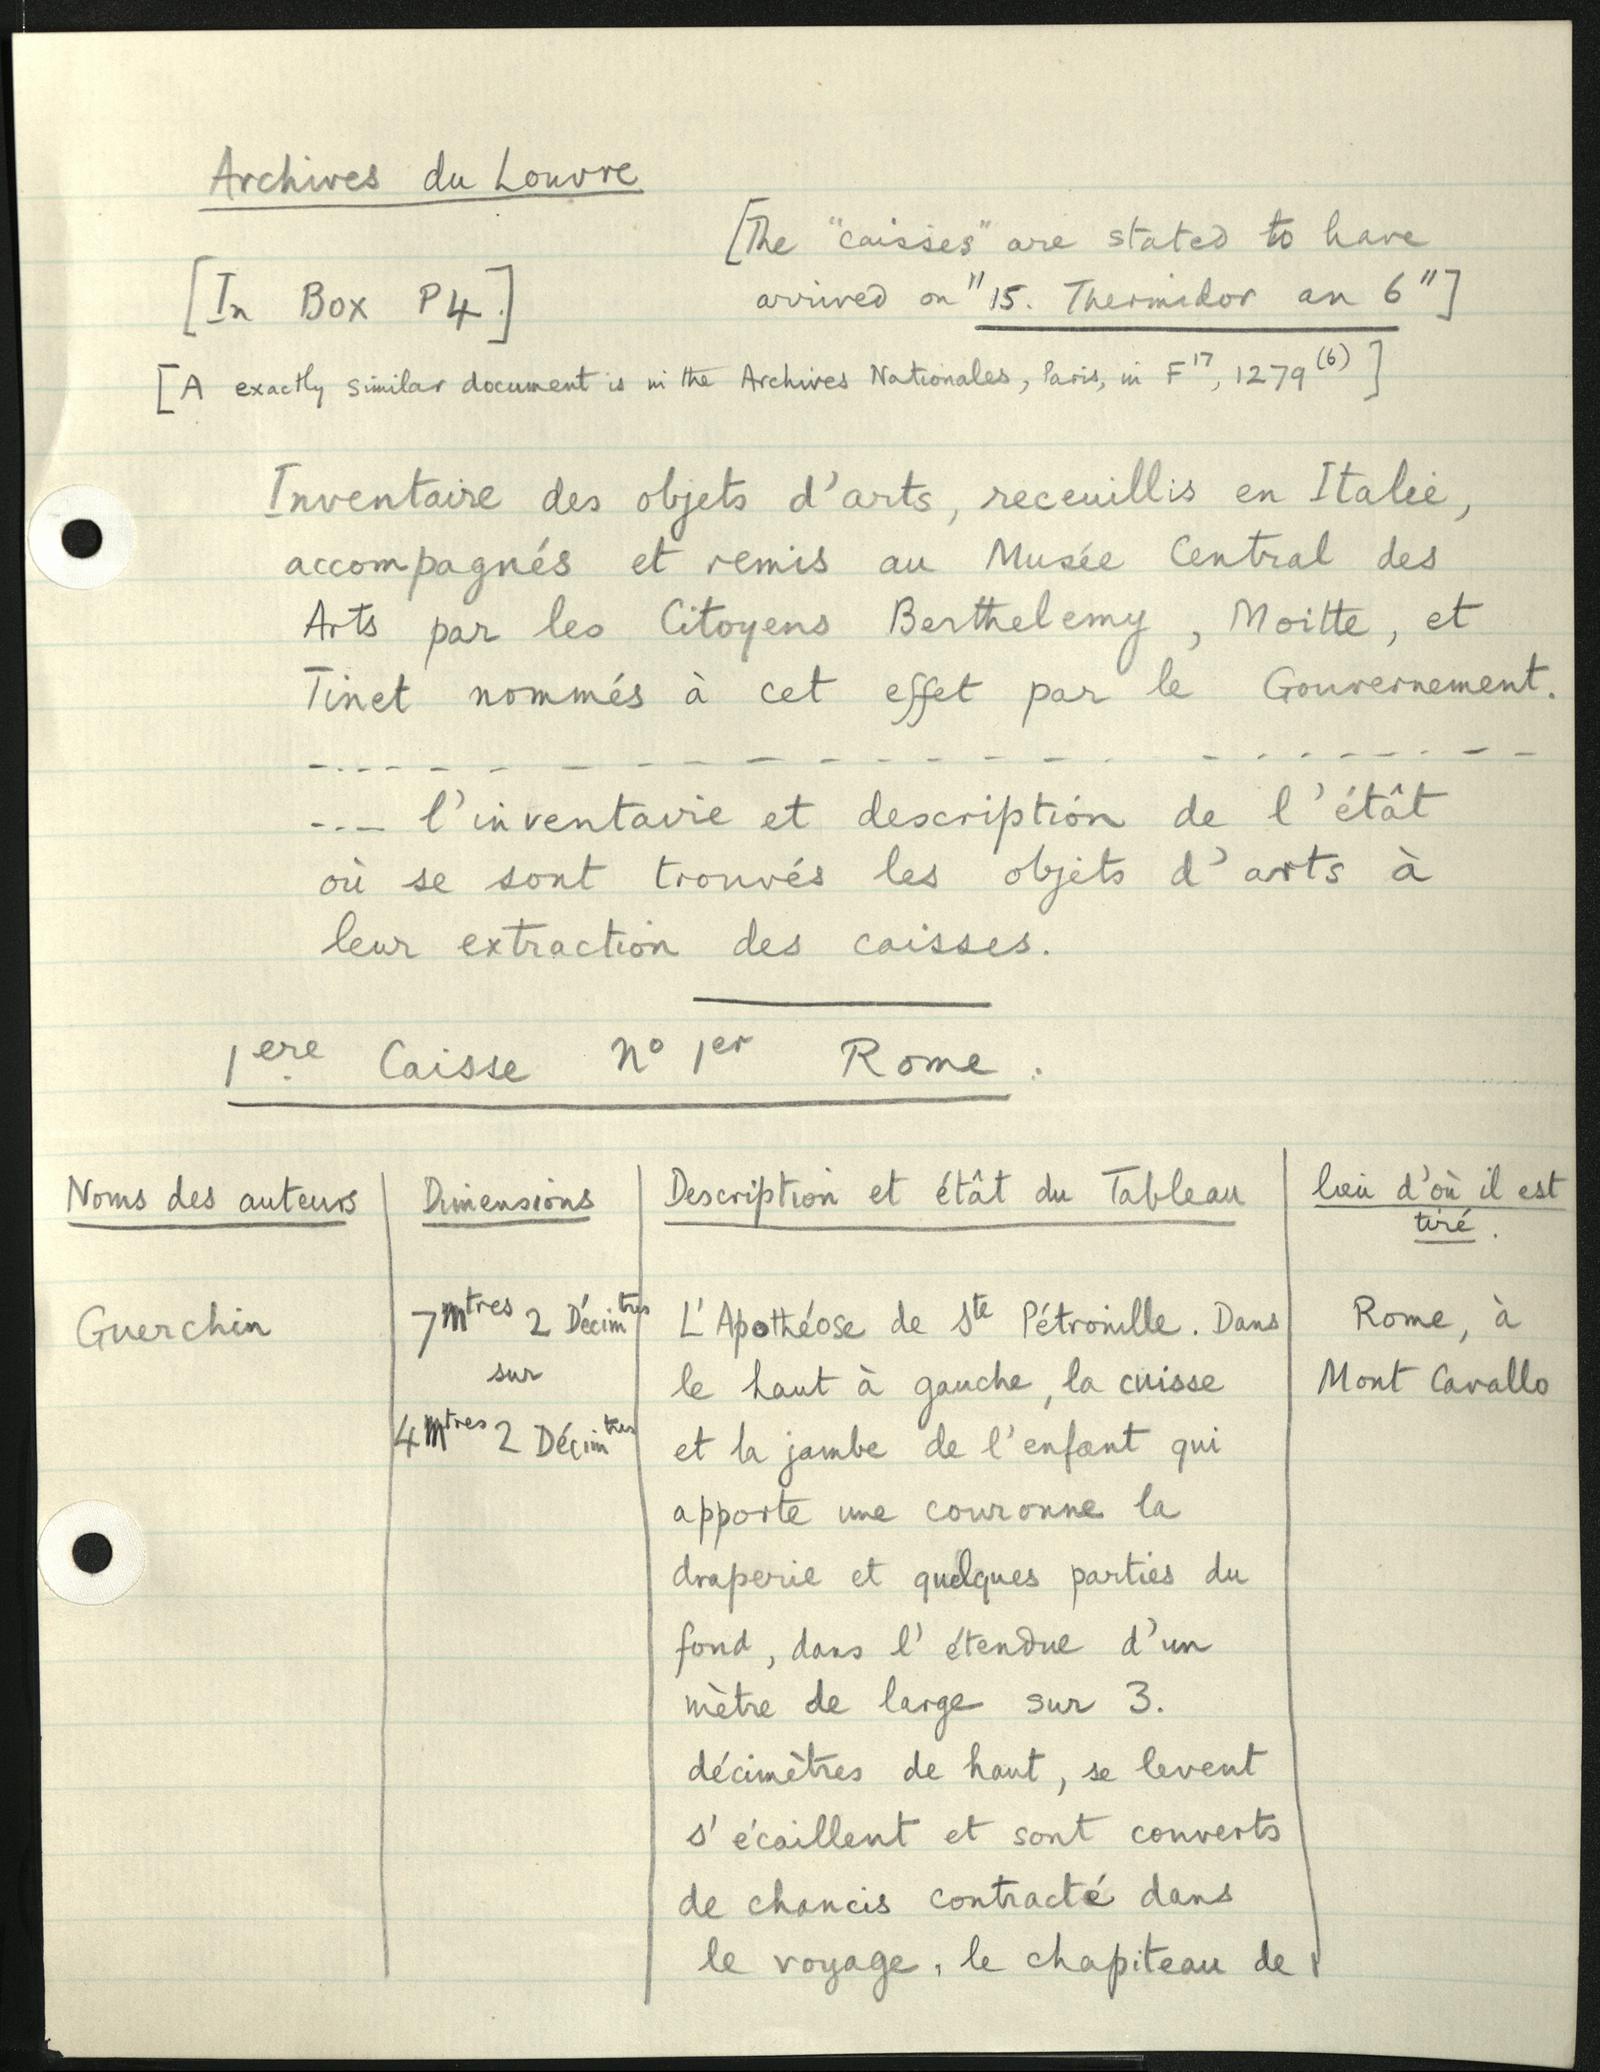 Archives du Louvre
[The "caisses" are stated to have
arrived on "15. Thermidor an 6"]
[In Box P4.]
[A exactly similar document is in the Archives Nationales, Paris, in F17, 1279(6)]
Inventaire des objets d'arts, receuillis en Italie,
accompagnés et remis au Musée Central des
Arts par les Citoyens Berthelemy, Moitte, et
Tinet nommés à cet effet par le Gouvernement.
---- l'inventaire et description de l'étât
où se sont trouvés les objets d'arts à
leur extraction des caisses.
1ere Caisse no 1er Rome.
Noms des auteurs
Dimensions
Description et étât du Tableau
lieu d'où il est
tiré.
Guerchin
7 mtres 2 Décimtres
sur
4 mtres 2 Décimtres
L'Apothéose de Ste Pétronille. Dans
le haut à gauche, la cuisse
et la jambe de l'enfant qui
apporte une couronne la
draperie et quelques parties du
fond, dans l'étendue d'un
mètre de large sur 3.
décimètres de haut, se levent
s'écaillent et sont converts
de chancis contracté dans
le voyage, le chapiteau de
Rome, à
Mont Cavallo